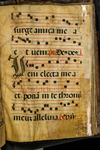 surge amica mea
et veni
Veni electa mea
et ponam in te thronum
meum alleluia